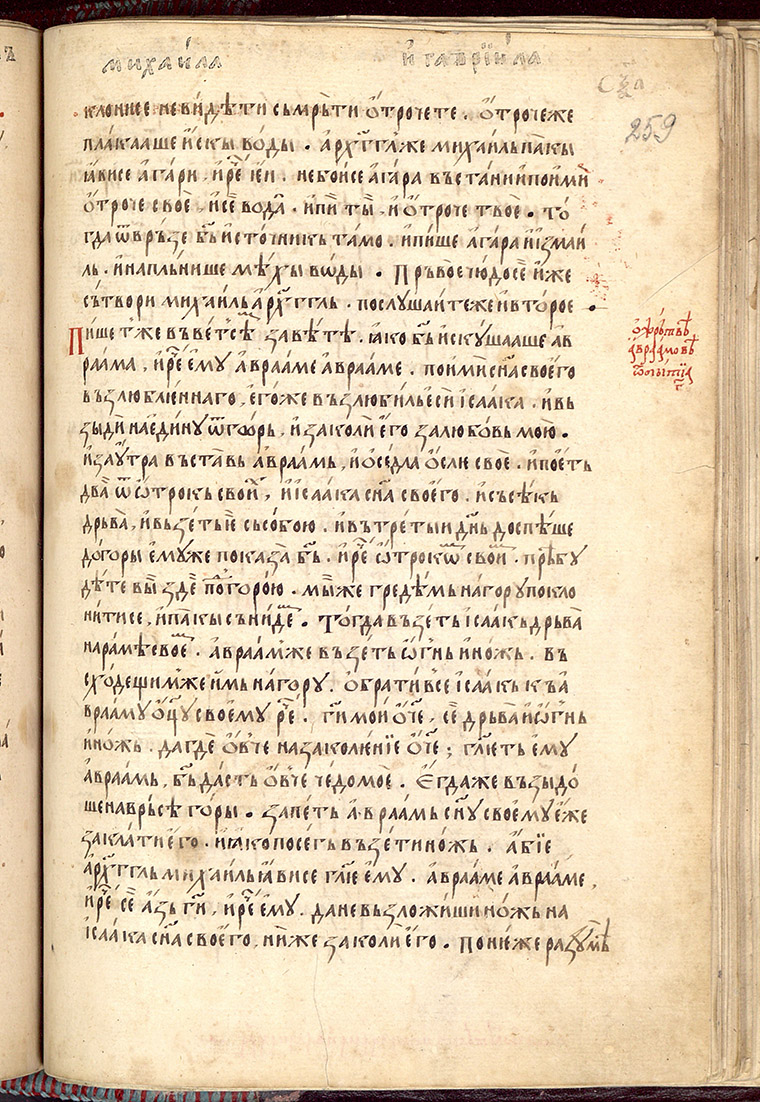 михаи́ла и҆ гаврїи́ла
259
клонисе не ви́дѣти сьмрьти ѻ҆трочете . ѻ҆троче же
пла́кааше и҆скы во́ды . а҆рхг҃гл же михаи́ль па́кы
ꙗ҆ви се а҆га́ри , и҆ рⷱ҇е є҆и . не бо́и се а҆га́ра въста́ни и҆ пои҆мѝ
ѻ҆троче своѐ , и҆ сѐ вода̀ . и҆ пі́и ты̀ , и҆ ѻ҆троче твоѐ . то́
гда ѿврьзе б҃ь и҆сто́чникь та́мо . и҆ пи́ше а҆га́ра и҆ і҆зма́и
ль . и҆ напль́нише мѣ́хы вѡ́ды . Пръ́вое чю́до сѐ и҆же
сътворѝ михаи́ль а҆рхг҃гль . послу́шаите же и҆ второе .
Пи́ше т же въ ве́тсѣ завѣ́тѣ . ꙗ҆ко б҃ь и҆скꙋша́аше ав
раама , и҆ рⷱ҇е є҆мꙋ а҆враа́ме а҆враа́ме . пои҆мѝ сн҃а своего
възлю́бленнаго , є҆го́же възлюби́ль є҆сѝ і҆саа́ка . и҆ вь
зы́ди на є҆ди́нꙋ ѿ го́рь , и҆ зако́ли є҆го̀ за любо́вь мою̀ .
и҆ заꙋ́тра въста́вь а҆враа́мь , и҆ ѡ҆се́дла ѻ҆сле своѐ . и҆ пое́ть
два̀ ѿ ѡ҆трокь свои́х , и҆ і҆саа́ка сн҃а своего̀ . и҆ съсѣ́кь
дрьва̀ , и҆ вьзе́ть є҆ съ собо́ю . и҆ въ тре́тыи дн҃ь доспѣ́ше
до го́ры є҆мꙋ́же показа̀ б҃ь . и҆ рⷱ҇е ѡ҆трокѡⷨ свои́мь . прѣбꙋ
дѣте вы̀ здѐ поⷣ горо́ю . мы́ же греде́мь на горꙋ покло
ни́ти се , и҆ па́кы съни́деⷨ . То́гда възе́ть і҆саа́кь дрьва̀
на ра́мѣ своеⷨ . а҆враа́мже възе́ть ѡ҆гнь и҆ но́жь . въ
сходе́щимже и҆мь на го́рꙋ . ѻ҆брати́ все і҆саа́кь къ а҆
враамꙋ ѻ҆ц҃ꙋ своемꙋ рⷱ҇е . гн҃и мои ѻ҆ч҃е , сѐ дрьва̀ и҆ ѡ҆гнь
и҆ но́жь . да гдѐ ѻ҆вче на заколе́нїе ѻ҆ч҃е ; гл҃еть є҆мꙋ
а҆враа́мь , б҃ь да́сть ѻ҆вче че́до моѐ . Є҆гда́же възыдо́
ше на врь́сѣ горы̀ . запе́ть а҆враа́мь сн҃ꙋ своемꙋ є҆же
закла́ти є҆го̀ . и҆ ꙗ҆ко посе́гь възе́ти но́жь . а҆бїе
а҆рхг҃гль михаи́ль ꙗ҆ви се гл҃е є҆мꙋ . а҆враа́ме а҆враа́ме ,
и҆ рⷱ҇е сѐ а҆зь гн҃и , и҆ рⷱ҇е є҆мꙋ . да не възложи́ши но́жь на
і҆саа́ка сн҃а своего , ни́же зако́ли є҆го̀ . поне́же разꙋмѣⷯ